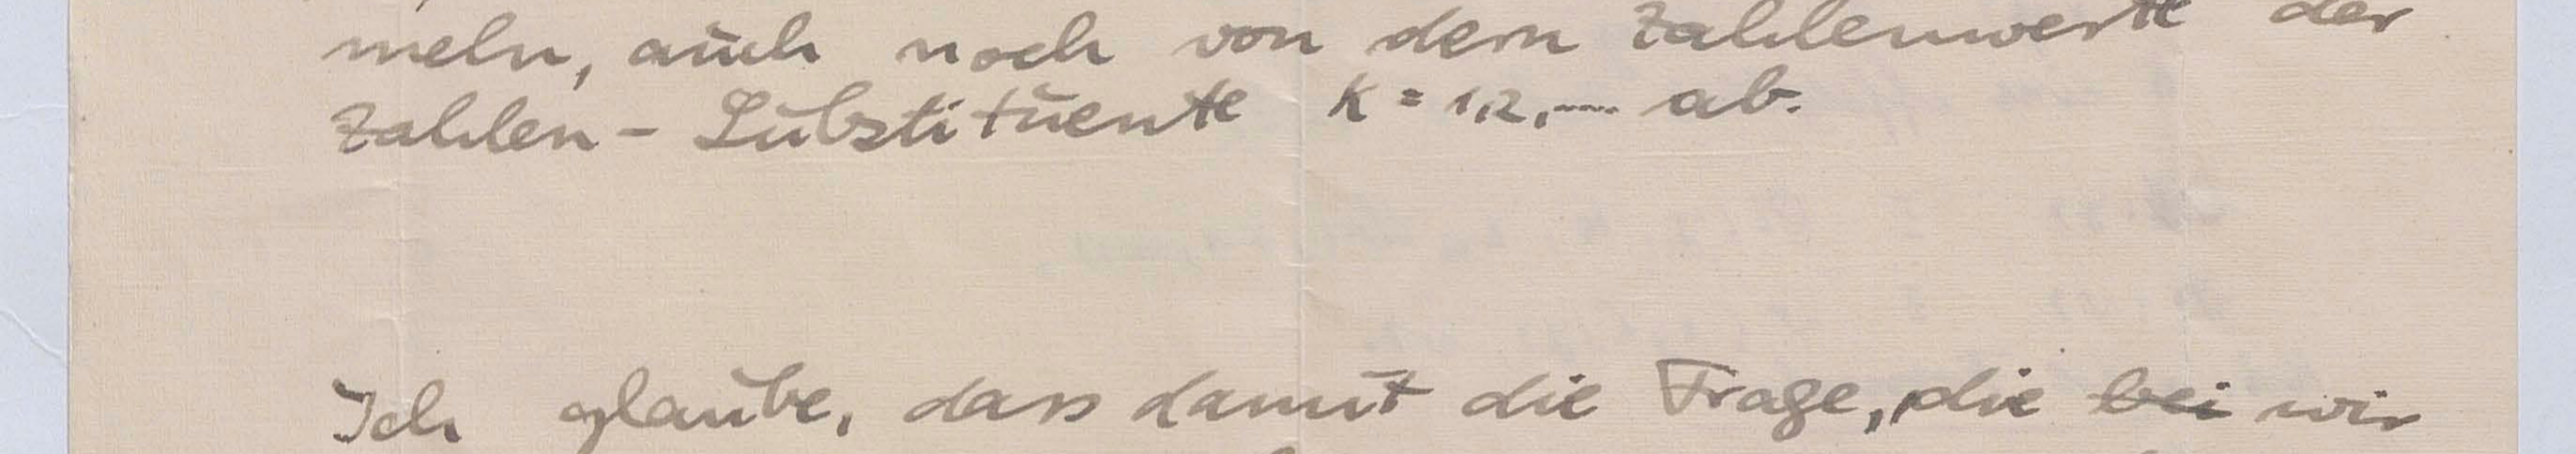 meln, auch noch von dem Zahlenwerte der
Zahlen - Substituente K = 1,2,.... ab.
Ich glaube, dass damit die Frage, die bei wir